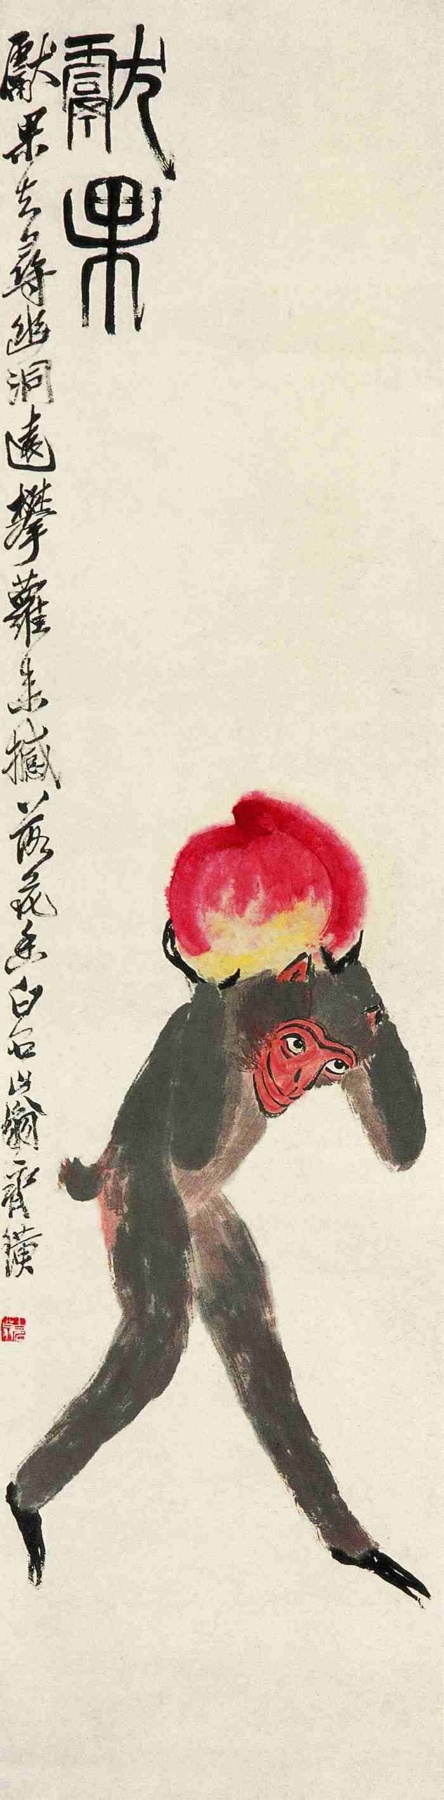 獻果
獻果去尋幽洞遠攀蘿未撼落花香白石山翁齊璜